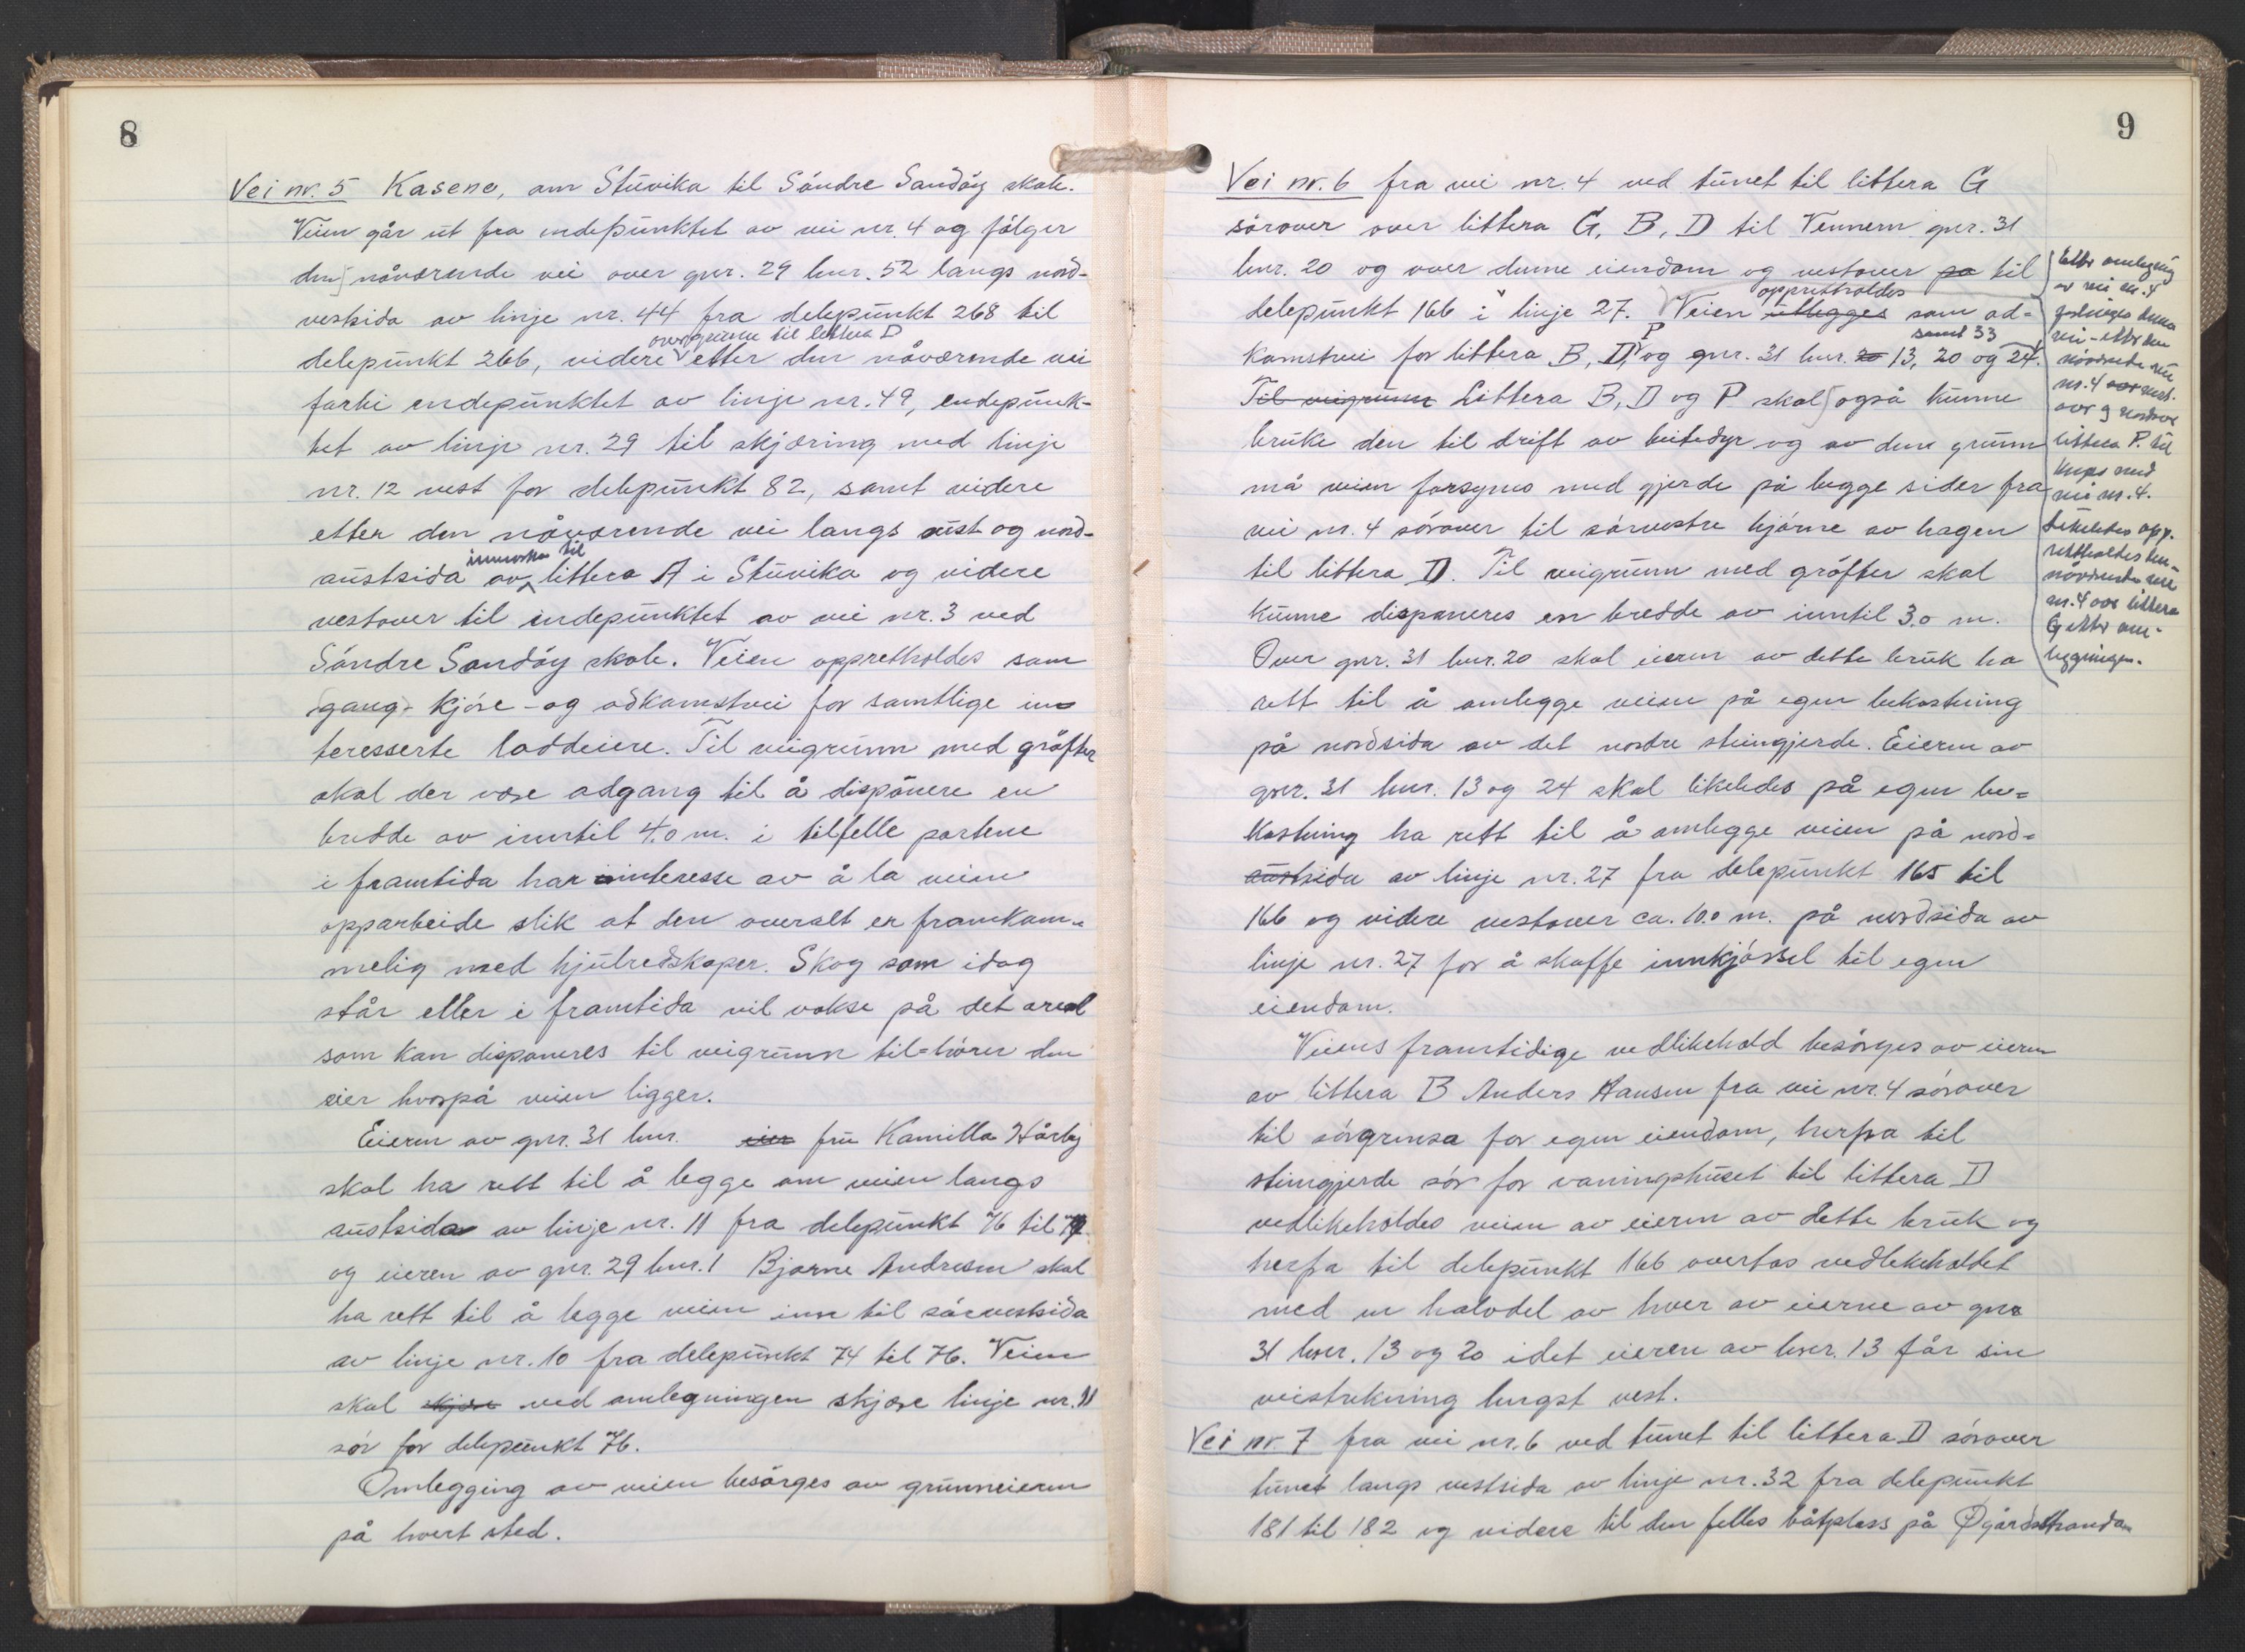 8
Vei nr. 5 Kasene, om Stuvika til Söndre Sandöy skole.
Veien går ut fra endepunktet av vei nr. 4 og fölger
den nåværende vei over gnr. 29 bnr. 52 langs nord-
vestsida av linje nr. 44 fra delepunkt 268 til
over grunn til littera D
delepunkt 266, videre etter den nåværende vei
forbi endepunktet av linje nr. 49, endepunk-
tet av linje nr. 29 til skjæring med linje
nr. 12 vest for delepunkt 82, samt videre
etter den nåværende vei langs aust og nord-
innmarka til
austsida av littera A i Stuvika og videre
vestover til endepunktet av vei nr. 3 ved
Söndre Sandöy skole. Veien opprettholdes som
gang- kjöre- og adkomstvei for samtlige in-
teresserte loddeiere. Til veigrunn med gröfter
skal der være adgang til å disponere en
bredde av inntil 4.0 m. i tilfelle partene
i framtida har interesse av å la veien
opparbeide slik at den overalt er framkom-
melig med hjulredskaper. Skog som idag
står eller i framtida vil vokse på det areal
som kan disponeres til veigrunn til-hörer den
eier hvorpå veien ligger.
Eieren av gnr. 31 bnr. eier fru Kamilla Hårby
skal ha rett til å legge om veien langs
austsida av linje nr. 11 fra delepunkt 76 til
og eieren av gnr. 29 bnr. 1 Bjarne Andresen skal
ha rett til å legge veien inn til sörvestsida
av linje nr. 10 fra delepunkt 74 til 76. Veien
skal skjære ved omlegningen skjære linje nr. 11
sör for delepunkt 76.
Omlegging av veien besörges av grunneieren
på hvert sted.
9
Vei nr. 6 fra vei nr. 4 ved tunet til littera G
sörover over littera G, B, D til Vennern gnr. 31
bnr. 20 og over denne eiendom og vestover på til
opprettholdes
delepunkt 166 i linje 27. Veien utlegges som ad-
P samt 33
komstvei for littera B, D, og gnr. 31 bnr. 20 13, 20 og 24.
Til veigrunn Littera B, D og P skal også kunne
bruke den til drift av beitedyr og av den grunn
må veien forsynes med gjerde på begge sider fra
vei nr. 4 sörover til sörvestre hjörne av hagen
til littera D. Til veigrunn med gröfter skal
kunne disponeres en bredde av inntil 3.0 m.
Over gnr. 31 bnr. 20 skal eieren av dette bruk ha
rett til å omlegge veien på egen bekostning
på nordsida av det nordre steingjerde. Eieren av
gnr. 31 bnr. 13 og 24 skal likeledes på egen be-
kostning ha rett til å omlegge veien på nord-
austsida av linje nr. 27 fra delepunkt 165 til
166 og videre vestover ca. 10.0 m. på nordsida av
linje nr. 27 for å skaffe innkjörsel til egen
eiendom.
Veiens framtidige vedlikehold besörges av eieren
av littera B Anders Hansen fra vei nr. 4 sörover
til sörgrensa for egen eiendom, herfra til
steingjerde sör for vaningshuset til littera D
vedlikeholdes veien av eieren av dette bruk og
herfra til delepunkt 166 overtas vedlikeholdet
med en halvdel av hver av eierne av gnr
31 bnr. 13 og 20 idet eieren av bnr. 13 får sin
veistrekning lengst vest.
Vei nr. 7 fra vei nr. 6 ved tunet til littera D sörover
tunet langs vestsida av linje nr. 32 fra delepunkt
181 til 182 og videre til den felles båtplass på Øgårdstranda
Etter omlegging
av vei nr. 4
forlenges denne
vei - etter den
nåværende vei
nr. 4 over vest-
over g nordover
littera P. til
kryss med
vei nr. 4.
Likeledes opp-
rettholdes den
nåværende vei
nr. 4 over littera
G etter om-
leggingen.